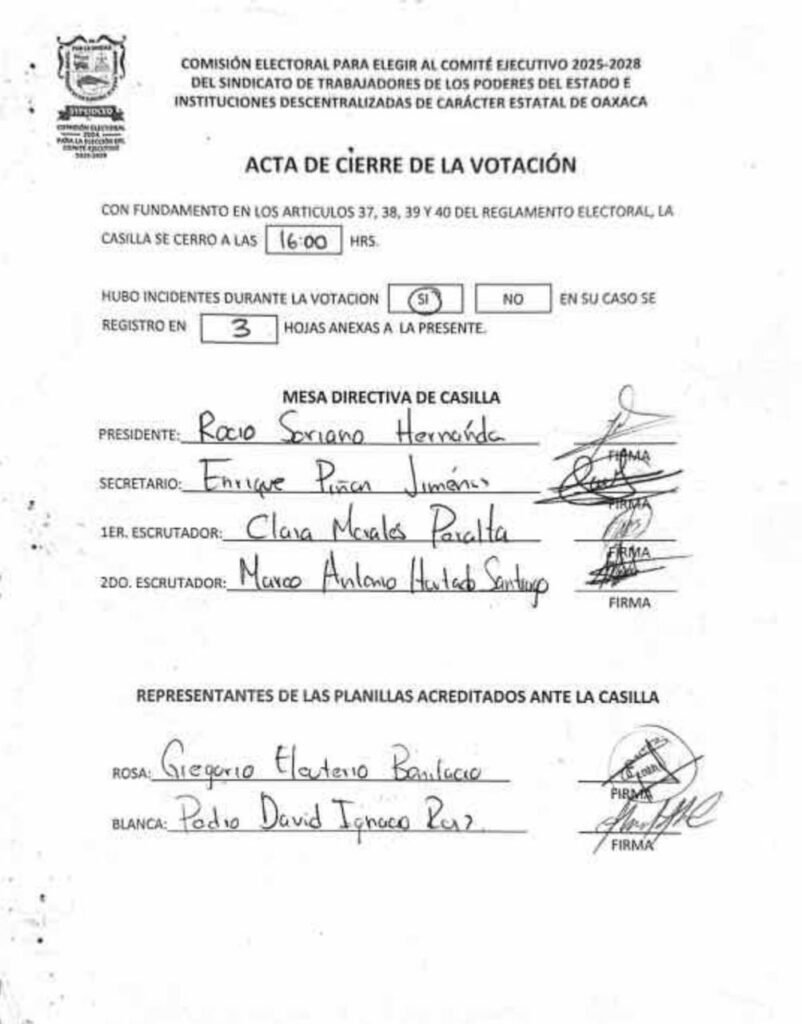 COMISIÓN ELECTORAL PARA ELEGIR AL COMITÉ EJECUTIVO 2025-2028
DEL SINDICATO DE TRABAJADORES DE LOS PODERES DEL ESTADO E
INSTITUCIONES DESCENTRALIZADAS DE CARÁCTER ESTATAL DE OAXACA
COMISIÓN ELECTORAL
2024
PARA LA ELECCIÓN DEL
COMITÉ EJECUTIVO
2025-2028
ACTA DE CIERRE DE LA VOTACIÓN
CON FUNDAMENTO EN LOS ARTICULOS 37, 38, 39 Y 40 DEL REGLAMENTO ELECTORAL, LA
CASILLA SE CERRO A LAS 16:00 HRS.
HUBO INCIDENTES DURANTE LA VOTACION SI NO EN SU CASO SE
REGISTRO EN 3 HOJAS ANEXAS A LA PRESENTE.
MESA DIRECTIVA DE CASILLA
PRESIDENTE: Rocio Soriano Hernánda
FIRMA
SECRETARIO: Enrique Jiménez
FIRMA
1ER. ESCRUTADOR: Clara Morales Peralta
FIRMA
2DO. ESCRUTADOR: Marco Antonio Hurtado Santiago
FIRMA
REPRESENTANTES DE LAS PLANILLAS ACREDITADOS ANTE LA CASILLA
ROSA: Gregorio Eleuterio Bonifacio
FIRMA
BLANCA: Pedro David Ignacio
FIRMA